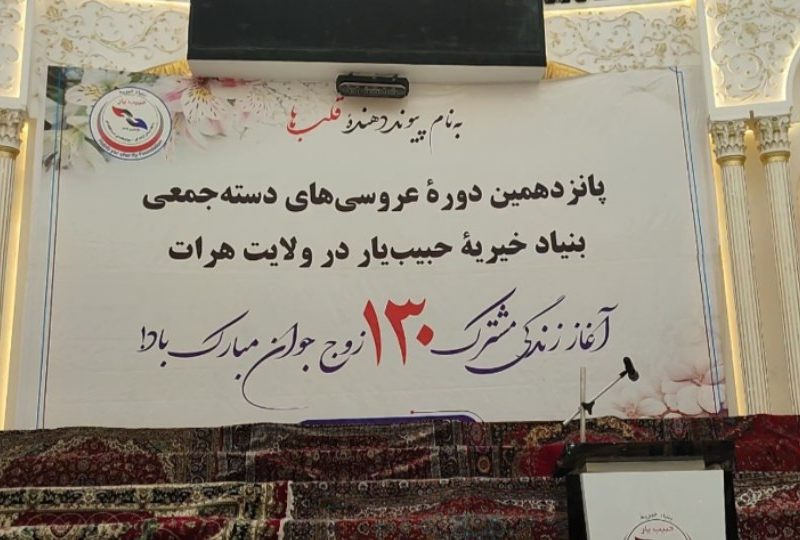 به‌نام پیونددهندهٔ قلب‌ها
بنیاد خیریه
حبیب یار
پانزدهمین دورهٔ عروسی‌های دسته‌جمعی
بنیاد خیریهٔ حبیب‌یار در ولایت هرات
آغاز زندگی مشترک ۱۳۰ زوج جوان مبارک باد!
بنیاد خیریه
حبیب یار